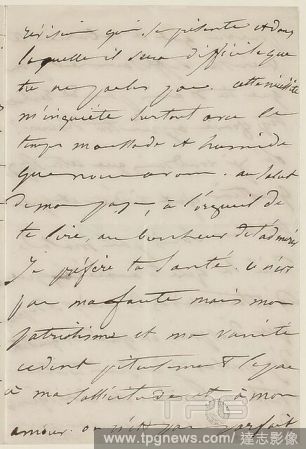 révision qui se présente et dans
laquelle il sera difficile que
tu ne parles pas. cette
m'inquiète surtout avec le
temps maussade et humide
que nous avons. au salut
de mon pays, à l'orgueil de
te lire, au bonheur de t'admirer
Je préfère ta santé. ce n'est
pas ma faute mais mon
patriotisme et ma vanité
cèdent piteusement le pas
à ma sollicitude et à mon
amour. on n'est pas parfait
TPG
www.tpgnews.com/達志影像